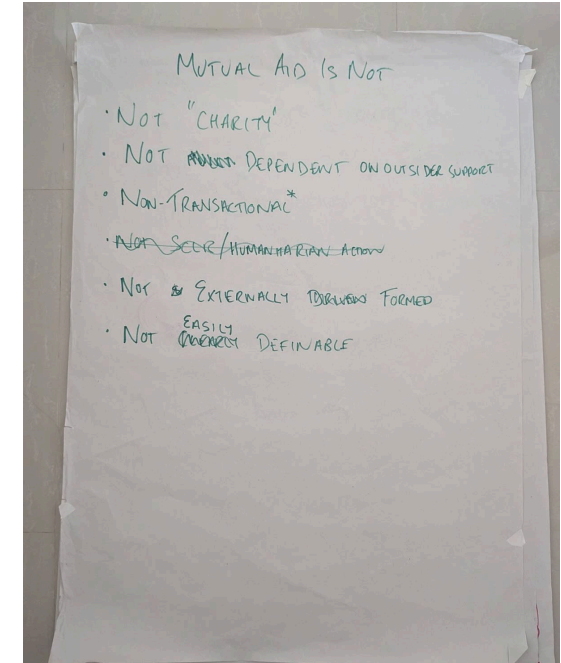 MUTUAL AID IS NOT
· NOT "CHARITY"
· NOT DEPENDENT ON OUTSIDER SUPPORT
· NON-TRANSACTIONAL*
· NOT SCLR/HUMANITARIAN ACTION
· NOT EXTERNALLY FORMED
EASILY
· NOT DEFINABLE